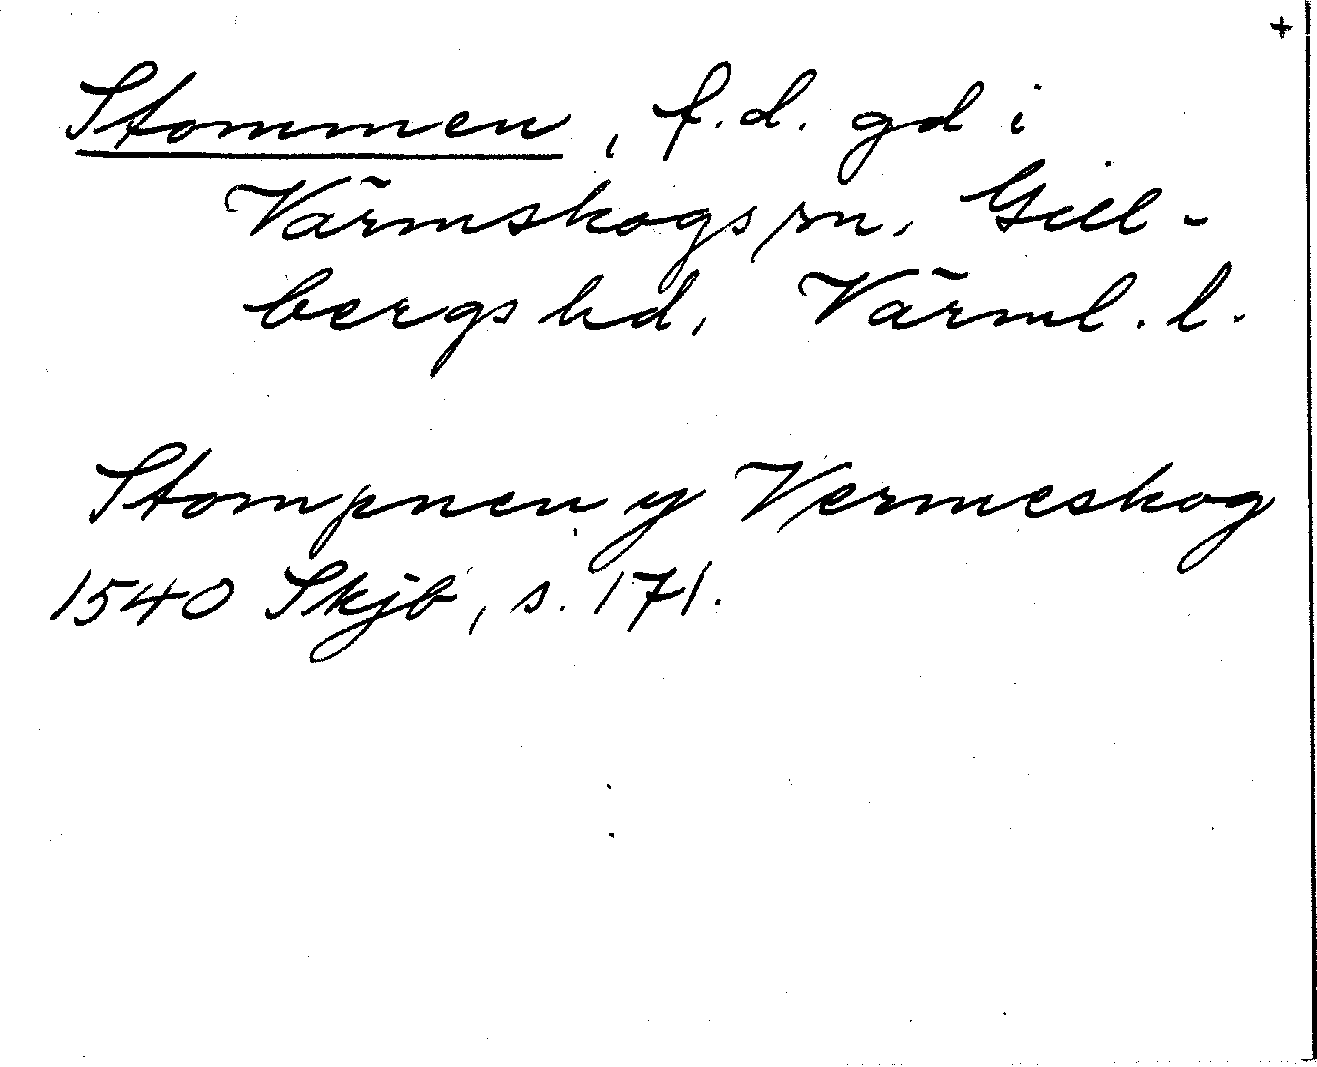 +
Stommen, f.d. gd i
Värmskogs sn, Gill-
bergs hd, Värml. l.
Stompnen y Vermeskog
1540 Skjb, s. 171.